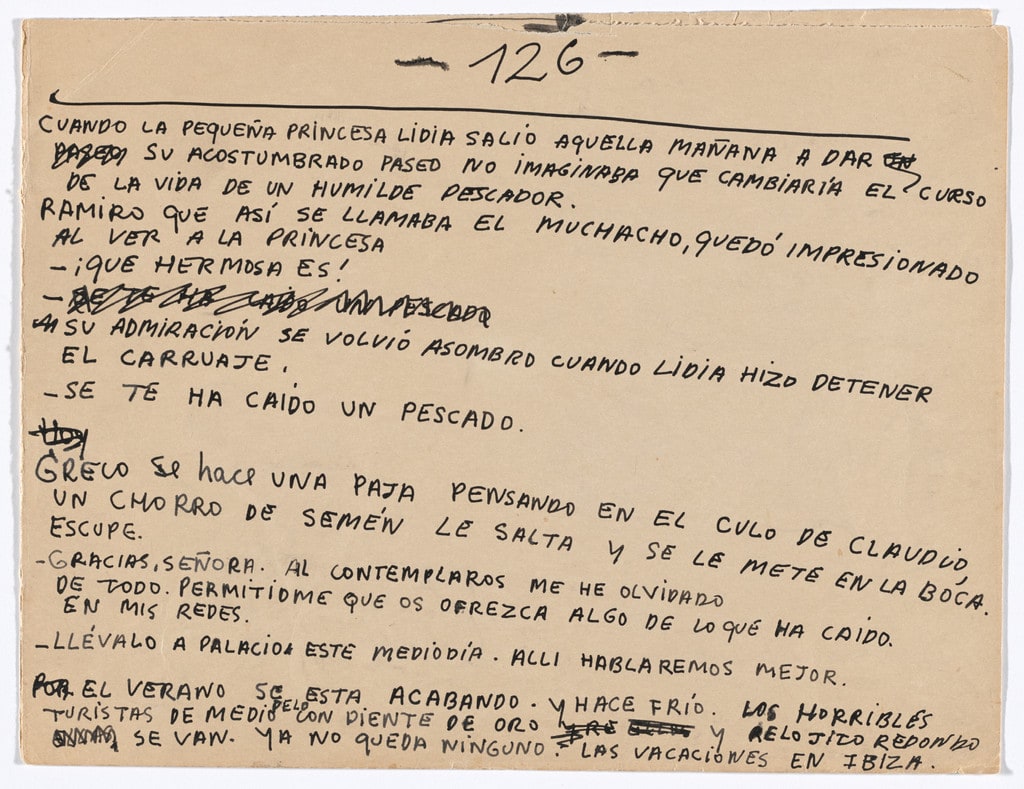 - 126 -
CUANDO LA PEQUEÑA PRINCESA LIDIA SALIO AQUELLA MAÑANA A DAR
SU ACOSTUMBRADO PASEO NO IMAGINABA QUE CAMBIARÍA EL CURSO
DE LA VIDA DE UN HUMILDE PESCADOR.
RAMIRO QUE ASÍ SE LLAMABA EL MUCHACHO, QUEDÓ IMPRESIONADO
AL VER A LA PRINCESA
- ¡QUE HERMOSA ES!
- SE TE HA CAIDO UN PESCADO
SU ADMIRACIÓN SE VOLVIÓ ASOMBRO CUANDO LIDIA HIZO DETENER
EL CARRUAJE.
- SE TE HA CAIDO UN PESCADO.
Hoy
GRECO se hace UNA PAJA PENSANDO EN EL CULO DE CLAUDIO,
UN CHORRO DE SEMÉN LE SALTA Y SE LE METE EN LA BOCA.
ESCUPE.
- GRACIAS, SEÑORA. AL CONTEMPLAROS ME HE OLVIDADO
DE TODO. PERMITIDME QUE OS OFREZCA ALGO DE LO QUE HA CAIDO.
EN MIS REDES.
- LLÉVALO A PALACIO ESTE MEDIODÍA. ALLI HABLAREMOS MEJOR.
EL VERANO SE ESTA ACABANDO. Y HACE FRÍO. LOS HORRIBLES
TURISTAS DE MEDIO PELO CON DIENTE DE ORO Y RELOJITO REDONDO
SE VAN. YA NO QUEDA NINGUNO. - LAS VACACIONES EN IBIZA.